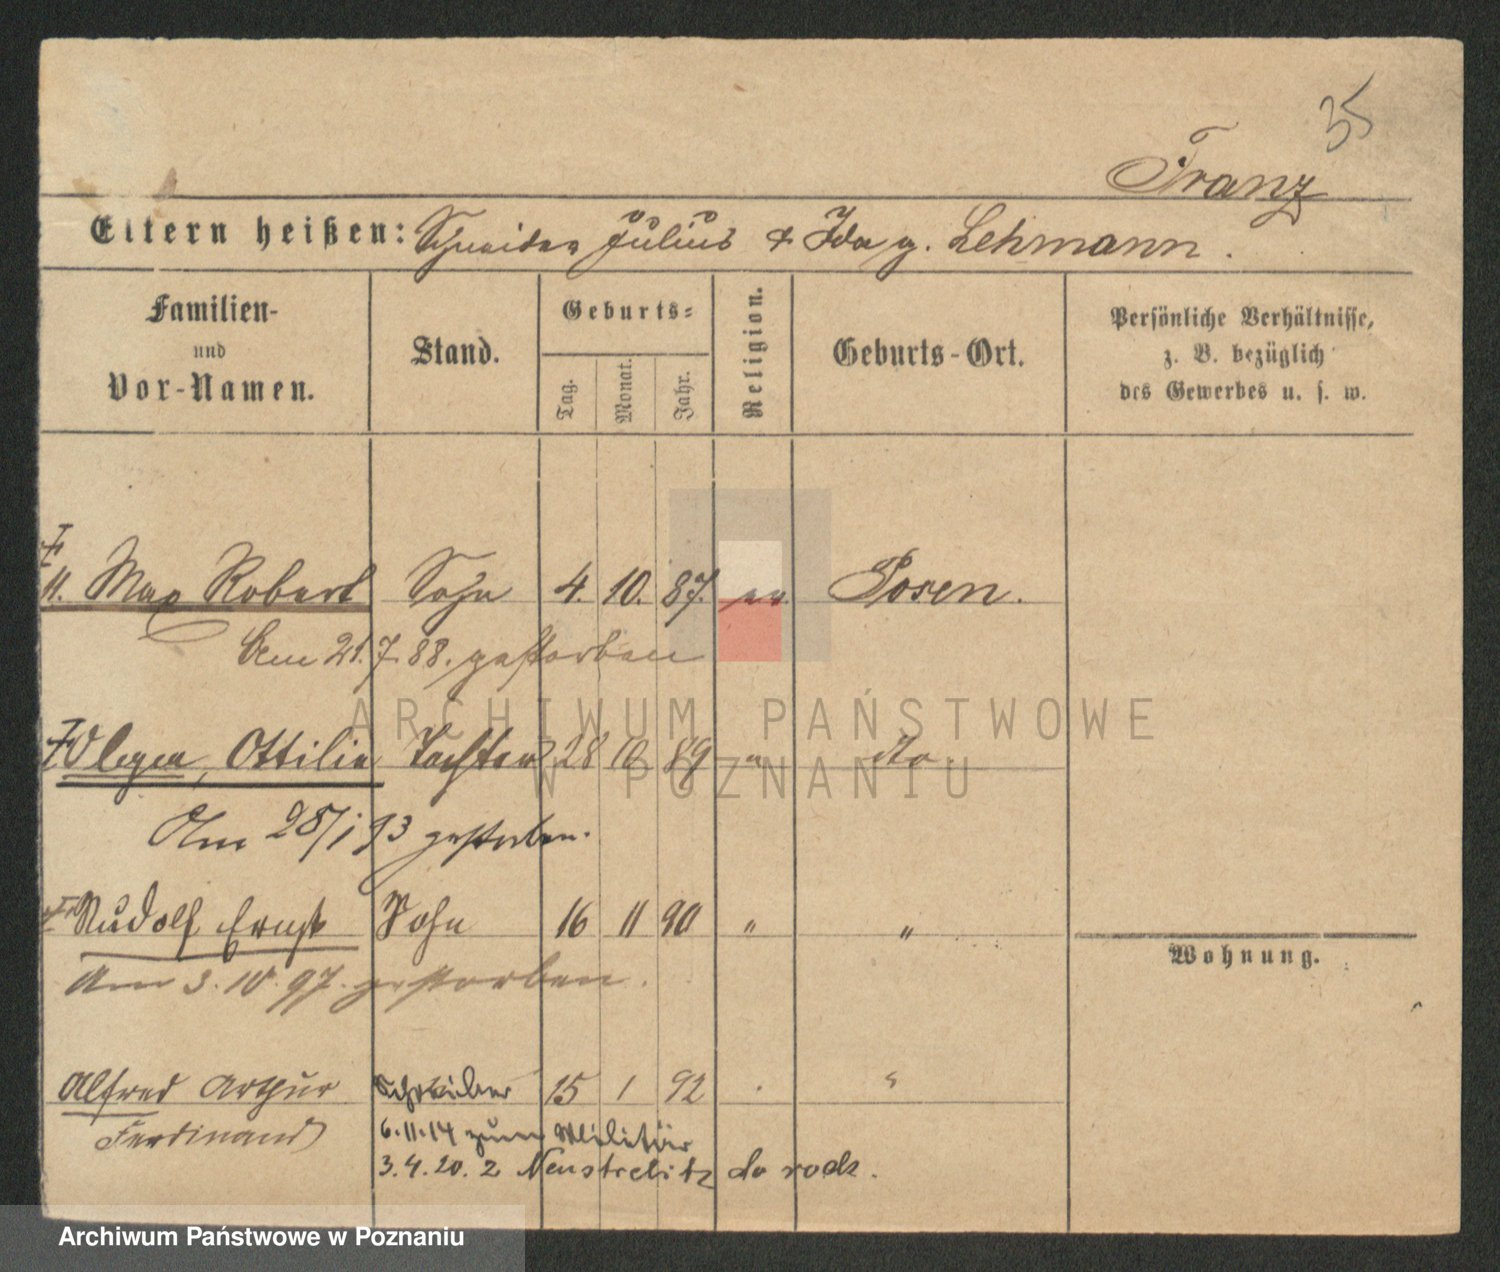 35
Franz
Eltern heißen: Schneider Julius & Ida g. Lehmann.
Familien-
und
Vor-Namen.
Stand.
Geburts-
Tag.
Monat.
Jahr.
Religion.
Geburts-Ort.
Persönliche Verhältnisse,
z. B. bezüglich
des Gewerbes u. s. w.
Max Robert Sohn 4. 10. 87. ev. Posen.
Am 21.7.88. gestorben
Olga, Ottilie Tochter 28 10 89 " dto.
Am 28/1 93 gestorben.
Rudolf Ernst Sohn 16 11 90 " "
Am 3.10.97. gestorben.
Wohnung.
Alfred Arthur Schreiber 15 1 92 "
Ferdinand
6.11.14 zum Militär
3.4.20. z Neustrelitz
ARCHIWUM PAŃSTWOWE
W POZNANIU
Archiwum Państwowe w Poznaniu